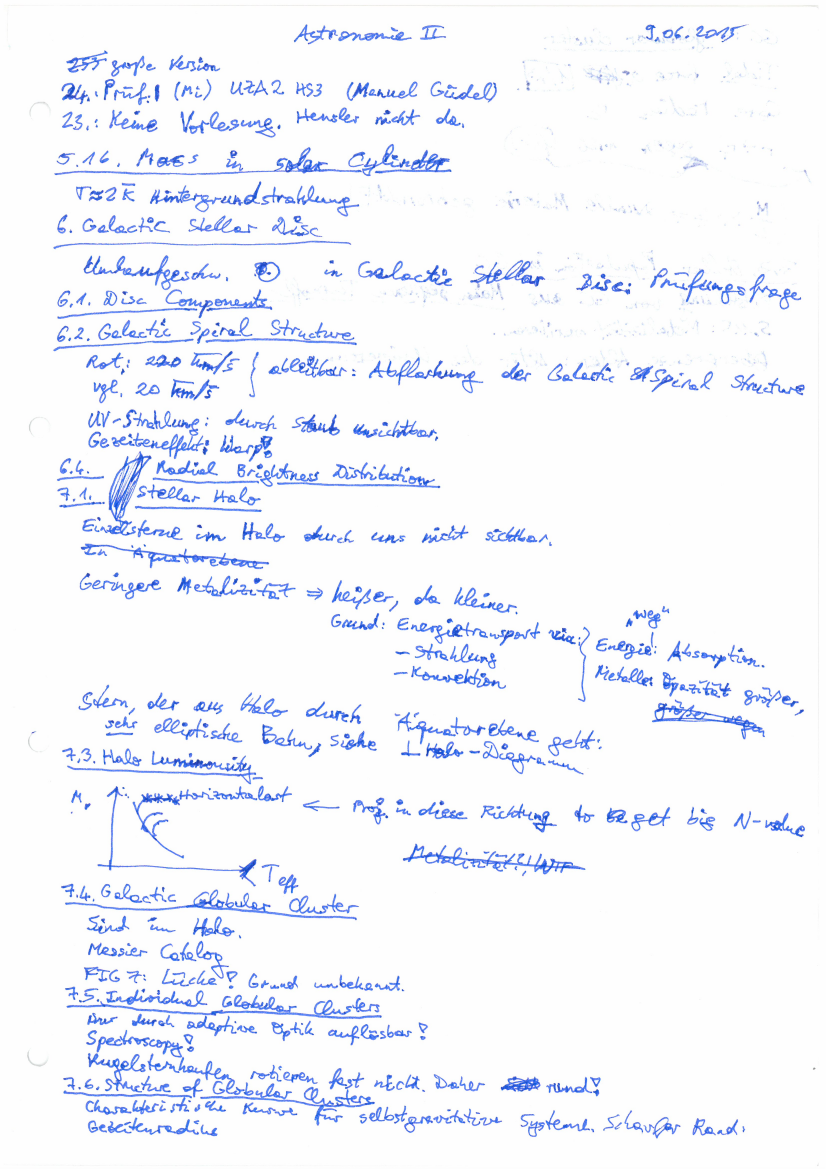 Astronomie II 9.06.2015
große Version
24.: Prüf.! (Mi) UZA2 HS3 (Manuel Güdel)
23.: Keine Vorlesung. Hensler nicht da.
5.16. Mass in solar Cylinder
T≈2K Hintergrundstrahlung
6. Galactic Stellar Disc
Umlaufgeschw. in Galactic Stellar Disc: Prüfungsfrage
6.1. Disc Components
6.2. Galactic Spiral Structure
Rot.: 220 km/s } ableitbar: Abflachung der Galactic Spiral Structure
vgl. 20 km/s
UV-Strahlung: durch Staub unsichtbar.
Gezeiteneffekt: Warp!
6.4. Radial Brightness Distribution
7.1. Stellar Halo
Einzelsterne im Halo durch uns nicht sichtbar.
In Äquatorebene
Geringere Metalizität ⇒ heißer, da kleiner.
Grund: Energietransport via:
– Strahlung
– Konvektion
„weg"
Energie: Absorption.
Metalle: Opazität größer,
größer wegen
Stern, der aus Halo durch Äquatorebene geht:
sehr elliptische Bahn, siehe ⊥ Halo-Diagramm
7.3. Halo Luminousity
Horizontalast ← Proj. in diese Richtung to get big N-value
Metalizität?!, WTF
T eff
7.4. Galactic Globular Cluster
Sind im Halo.
Messier Catalog
FIG 7: Lücke! Grund unbekannt.
7.5. Individual Globular Clusters
Nur durch adaptive Optik auflösbar!
Spectroscopy!
Kugelsternhaufen rotieren fast nicht. Daher rund!
7.6. Structure of Globular Clusters
Charakteristische Kurve für selbstgravitative Systeme. Scharfer Rand:
Gezeitenradius